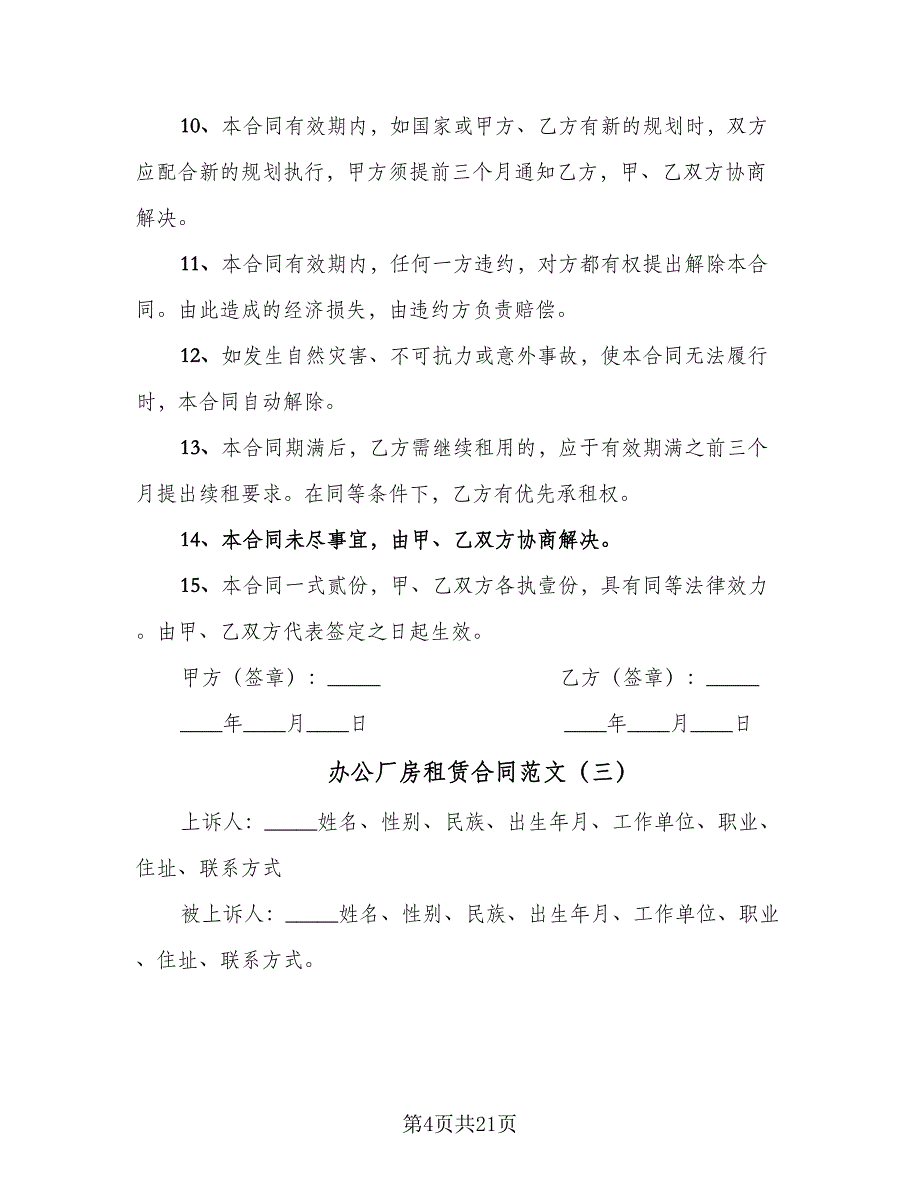 10、本合同有效期内，如国家或甲方、乙方有新的规划时，双方
应配合新的规划执行，甲方须提前三个月通知乙方，甲、乙双方协商
解决。
11、本合同有效期内，任何一方违约，对方都有权提出解除本合
同。由此造成的经济损失，由违约方负责赔偿。
12、如发生自然灾害、不可抗力或意外事故，使本合同无法履行
时，本合同自动解除。
13、本合同期满后，乙方需继续租用的，应于有效期满之前三个
月提出续租要求。在同等条件下，乙方有优先承租权。
14、本合同未尽事宜，由甲、乙双方协商解决。
15、本合同一式贰份，甲、乙双方各执壹份，具有同等法律效力
。由甲、乙双方代表签定之日起生效。
甲方（签章）：_____ 乙方（签章）：_____
____年____月____日 ____年____月____日
办公厂房租赁合同范文（三）
上诉人：_____姓名、性别、民族、出生年月、工作单位、职业、
住址、联系方式
被上诉人：_____姓名、性别、民族、出生年月、工作单位、职业
、住址、联系方式。
第4页共21页